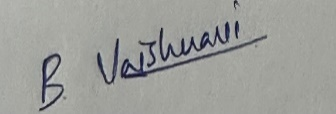 B. Vaishnavi